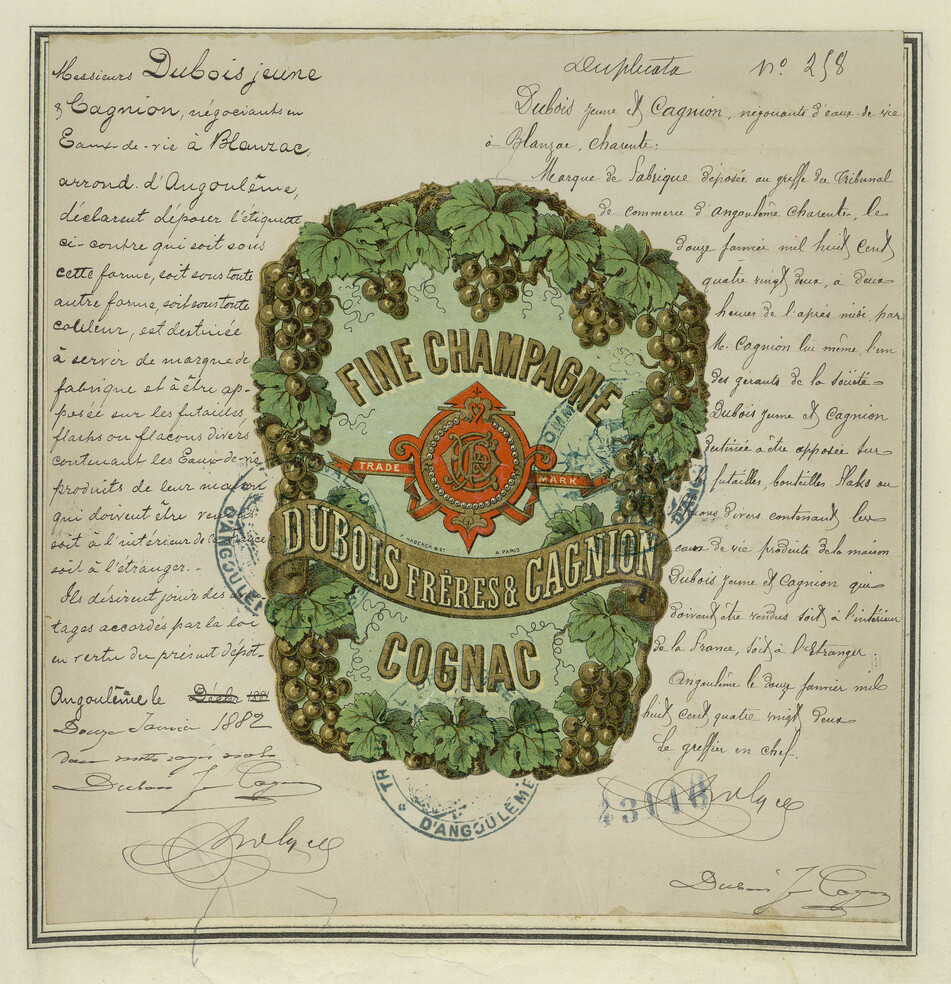 Messieurs Dubois jeune
& Cagnion, négociants en
Eaux-de-vie à Blanzac,
arrond. d'Angoulême,
déclarent déposer l'étiquette
ci-contre qui soit sous
cette forme, soit sous toute
autre forme, soit sous toute
couleur, est destinée
à servir de marque de
fabrique et à être ap-
posée sur les futailles,
flasks ou flacons divers
contenant les Eaux-de-vie
produits de leur maison
qui doivent être vendus
soit à l'intérieur de la France
soit à l'étranger.-
Ils désirent jouir des
tages accordés par la loi
en vertu du présent dépôt-
Angoulême le
Douze Janvier 1882
Dubois Je Cagnion
Duplicata No 258
Dubois jeune et Cagnion, négociants d'eaux-de-vie
à Blanzac, Charente:
Marque de Fabrique déposée au greffe du Tribunal
de commerce d'Angoulême Charente, le
douze janvier mil huit cent
quatre vingt deux, à deux
heures de l'après midi, par
M. Cagnion lui même, l'un
des gerants de la société
Dubois jeune et Cagnion
Destinée à être apposée sur
futailles, bouteilles flasks ou
divers contenant les
eaux de vie produits de la maison
Dubois jeune et Cagnion qui
doivent être vendus soit à l'intérieur
de la France, soit à l'Etranger
Angoulême le douze janvier mil
huit cent quatre vingt deux
Le greffier en chef.
43118
Dubois Je Cagnion
FINE CHAMPAGNE
TRADE MARK
F. HABERER & CIE A PARIS
DUBOIS FRÈRES & CAGNION
COGNAC
D'ANGOULÊME
D'ANGOULÊME